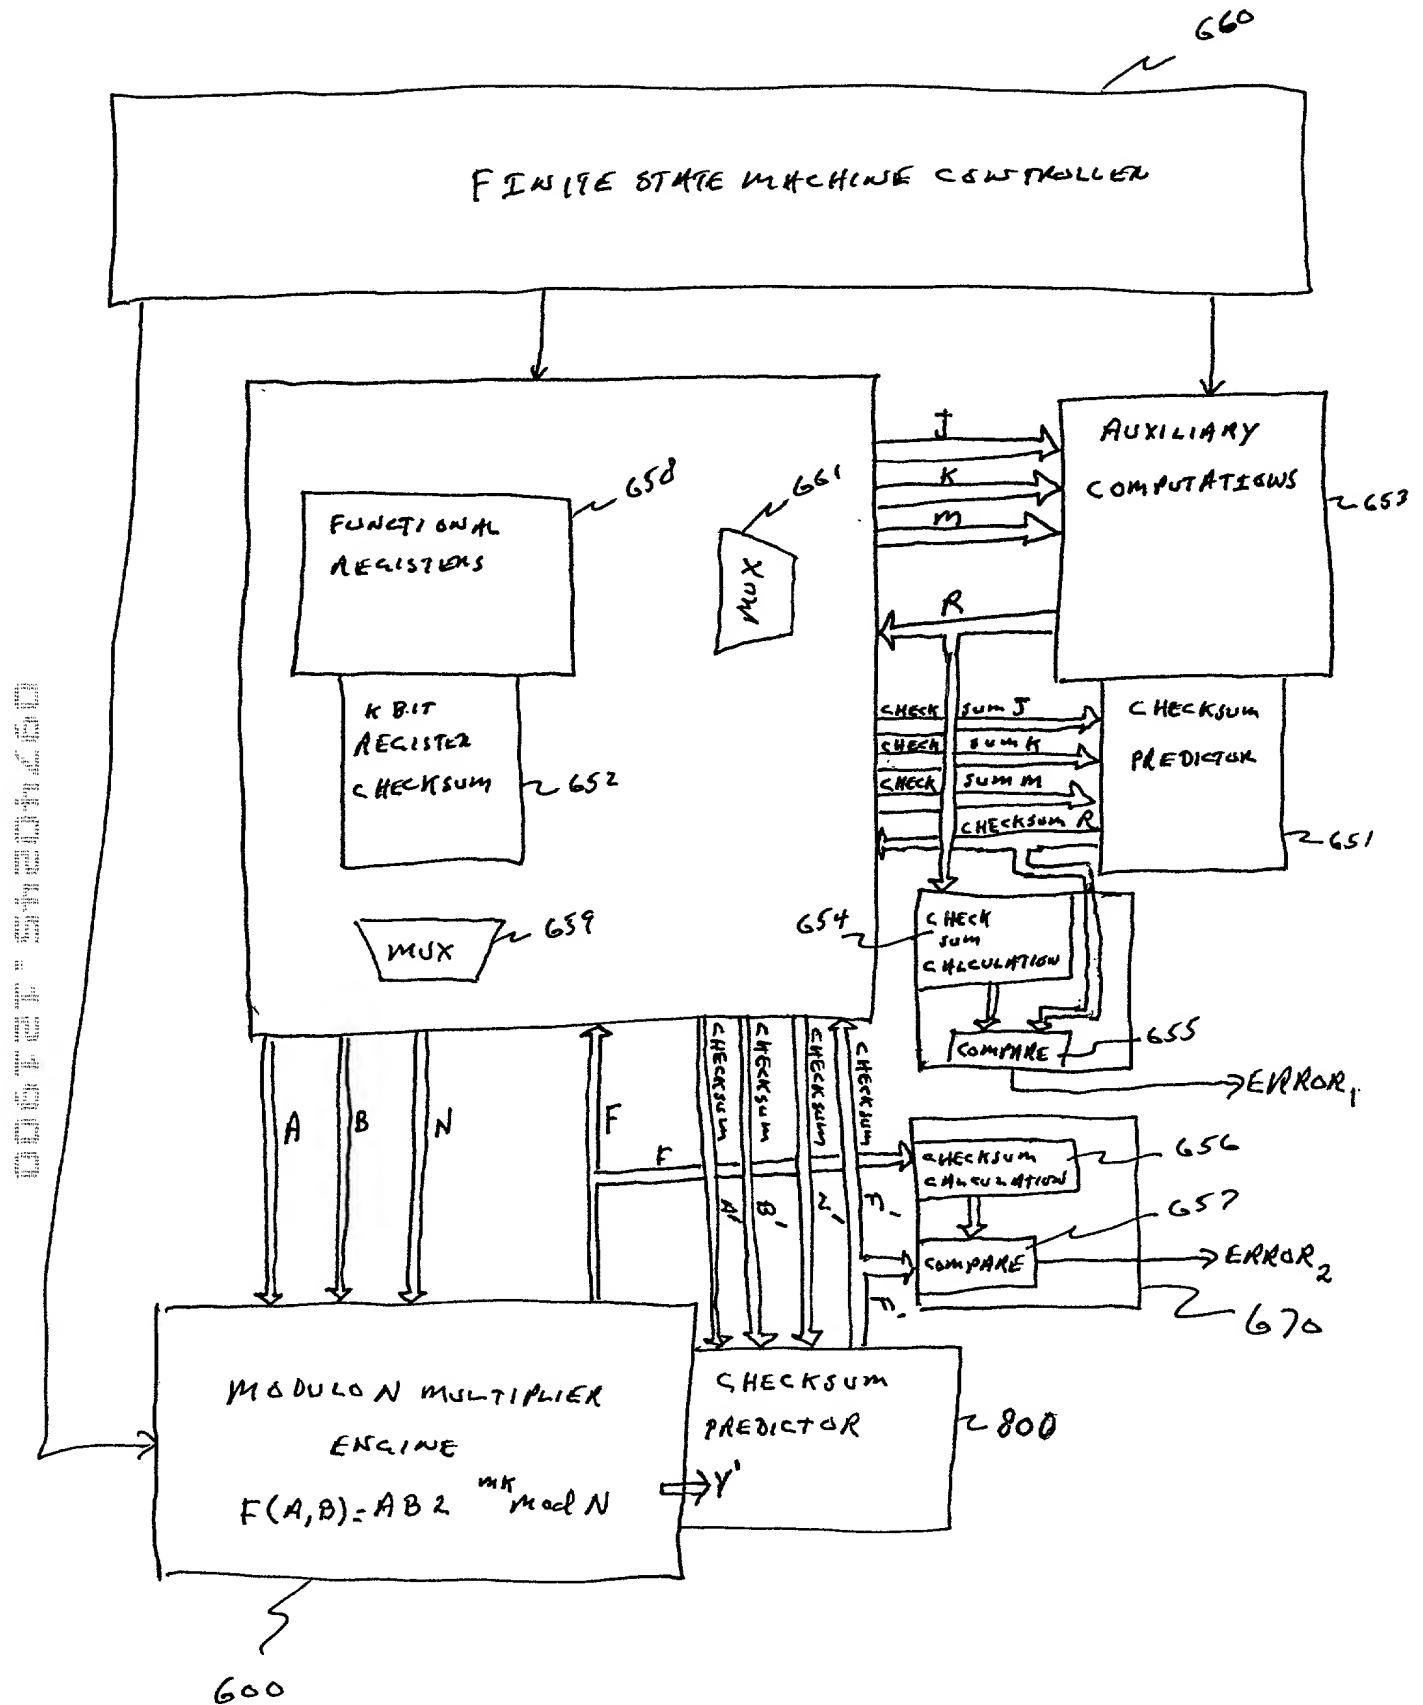 660
FINITE STATE MACHINE CONTROLLER
J
K
M
R
AUXILIARY
COMPUTATIONS
653
658
FUNCTIONAL
REGISTERS
661
MUX
K BIT
REGISTER
CHECKSUM
652
CHECK SUM J
CHECK SUM K
CHECK SUM M
CHECKSUM R
CHECKSUM
PREDICTOR
651
MUX
659
654
CHECK
SUM
CALCULATION
COMPARE
655
ERROR1
A
B
N
F
F
CHECKSUM A'
CHECKSUM B'
CHECKSUM N'
CHECKSUM F'
CHECKSUM
CALCULATION
656
657
COMPARE
ERROR2
F'
670
MODULO N MULTIPLIER
ENGINE
F(A,B)=AB2^mk mod N
CHECKSUM
PREDICTOR
800
Y'
600